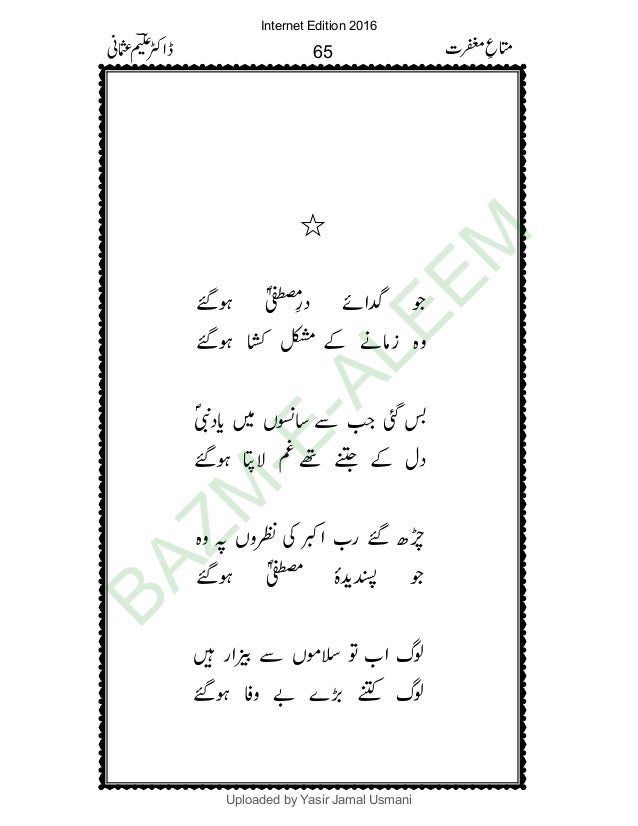 Internet Edition 2016
متاعِ مغفرت 65 ڈاکٹر علیمؔ عثمانی
☆
جو گدائے درِ مصطفیٰؐ ہوگئے
وہ زمانے کے مشکل کشا ہوگئے
بس گئی جب سے سانسوں میں یادِ نبیؐ
دل کے جتنے تھے غم لاپتا ہوگئے
چڑھ گئے رب اکبر کی نظروں پہ وہ
جو پسندیدۂ مصطفیٰؐ ہوگئے
لوگ اب تو سلاموں سے بیزار ہیں
لوگ کتنے بڑے بے وفا ہوگئے
BAZM-E-ALEEM
Uploaded by Yasir Jamal Usmani